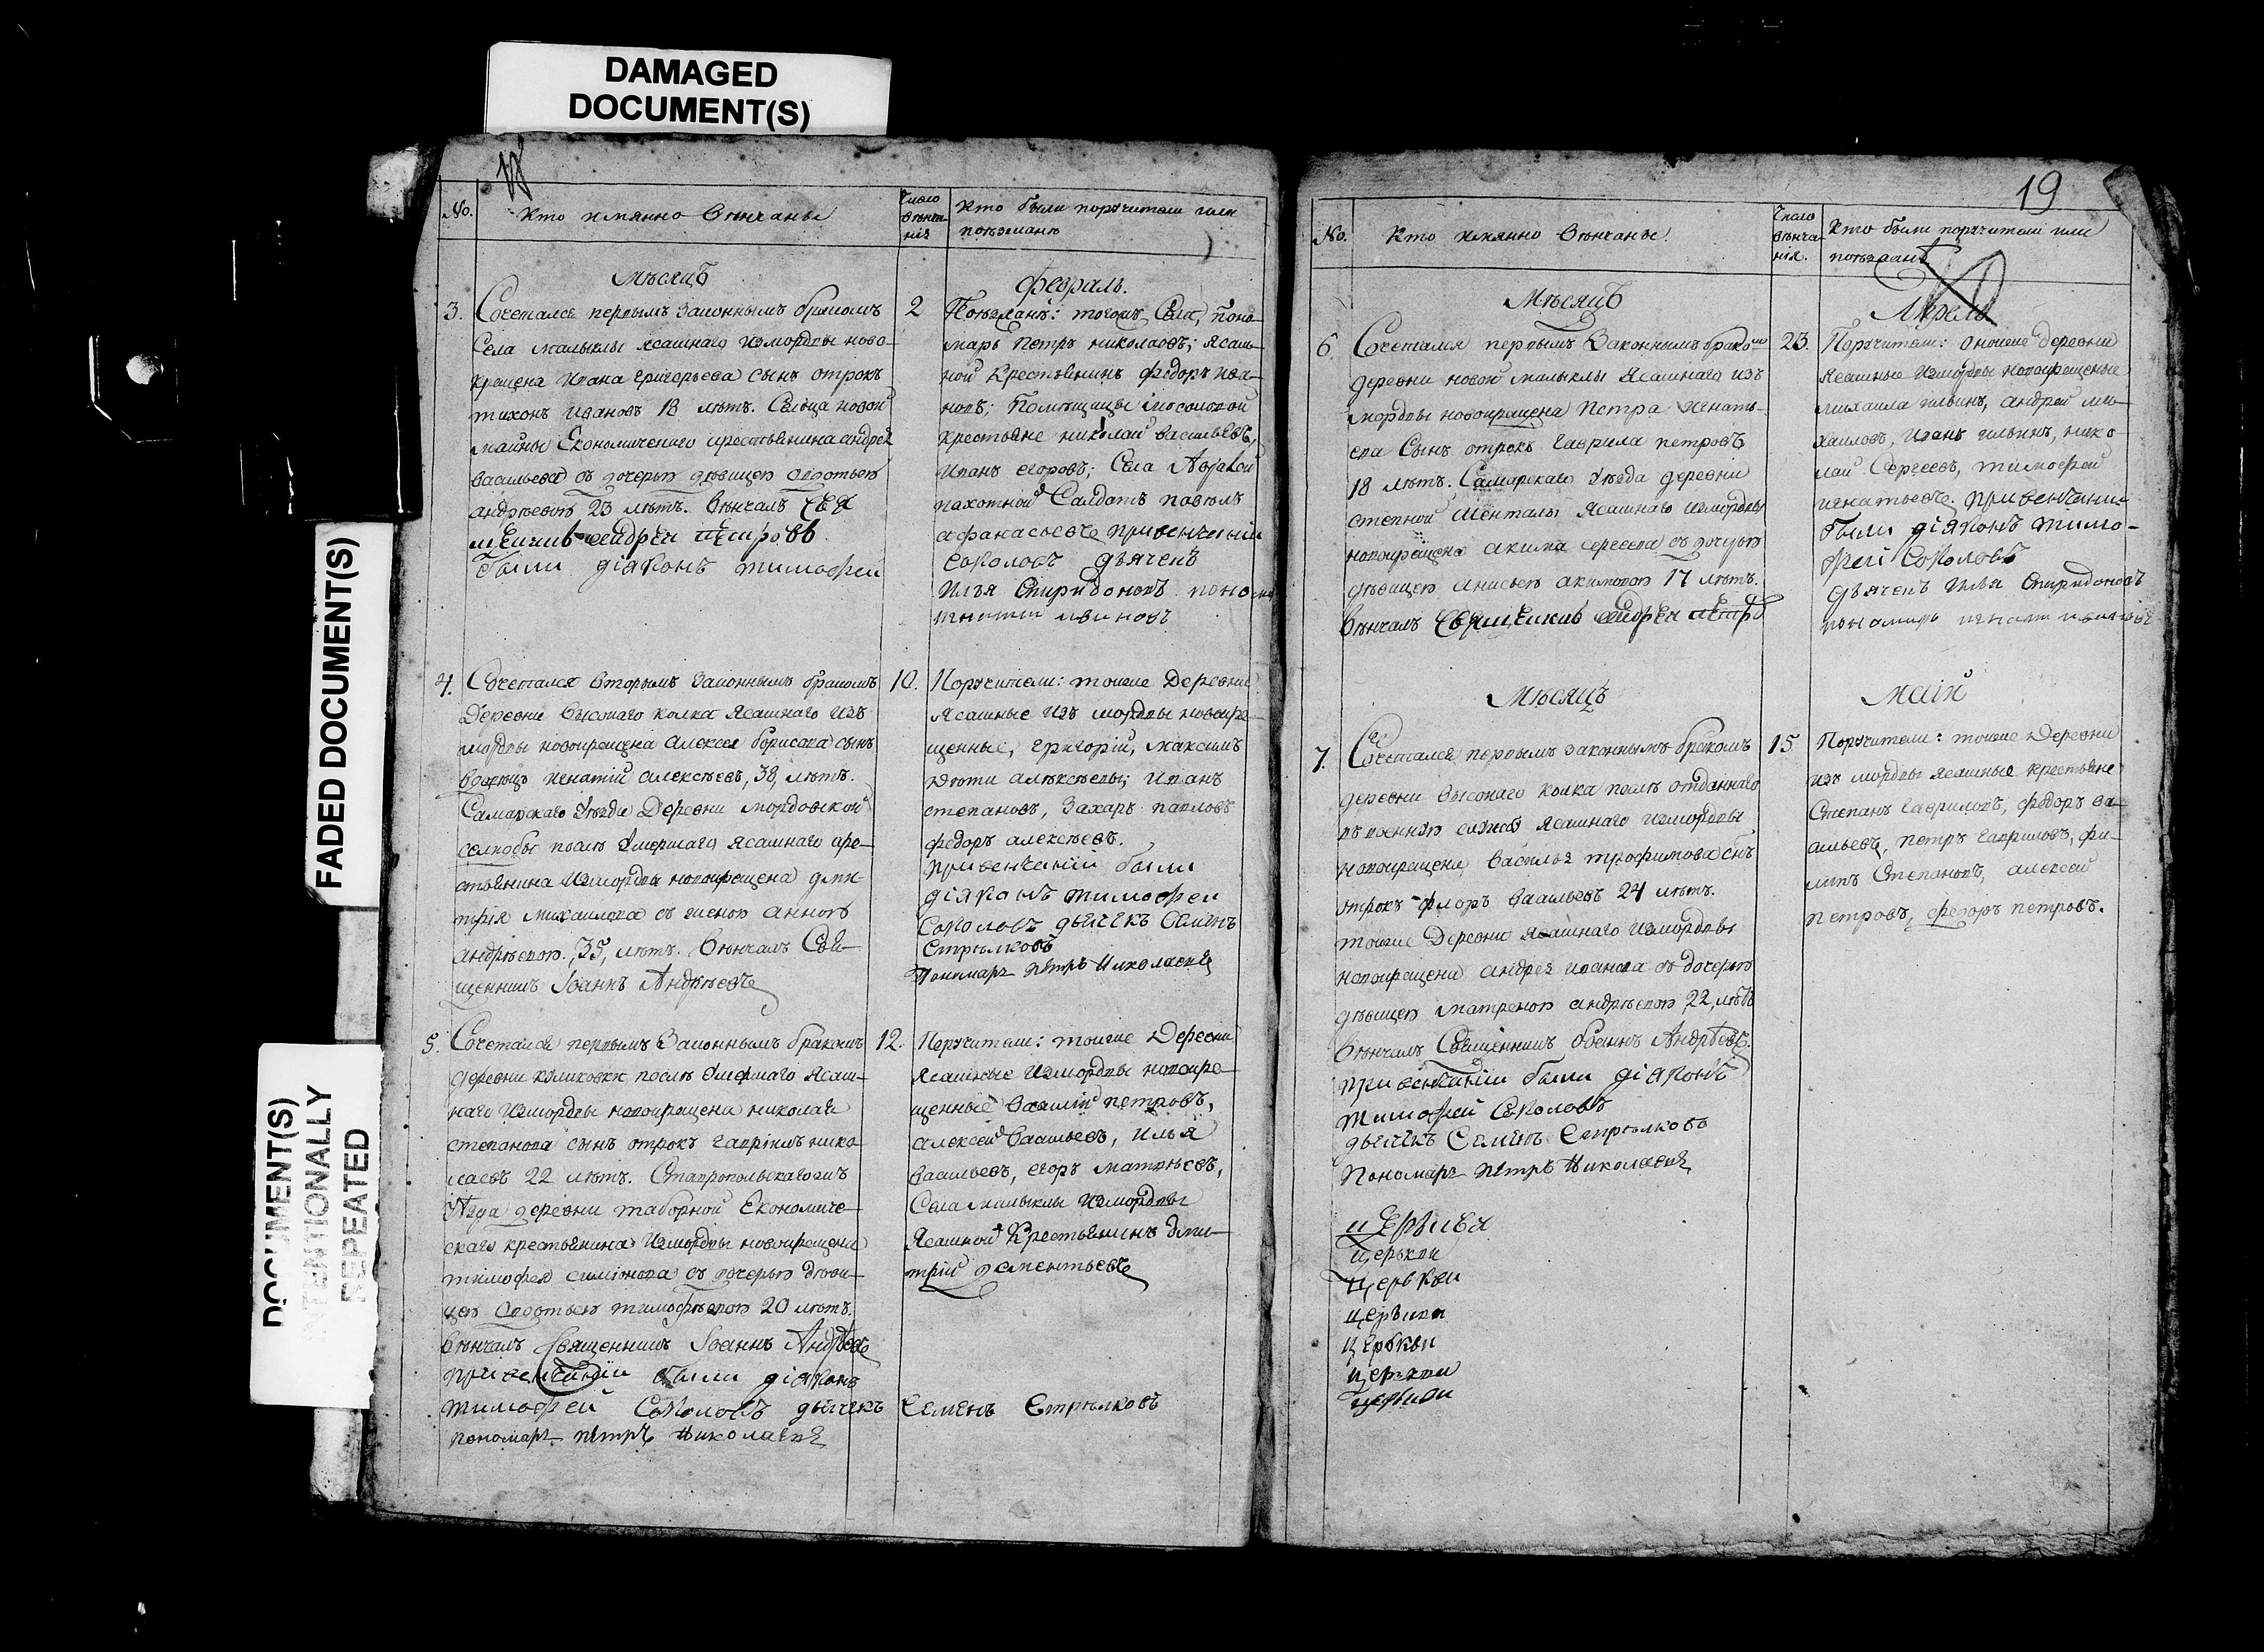 DAMAGED
DOCUMENT(S)
FADED DOCUMENT(S)
DOCUMENT(S)
INTENTIONALLY
REPEATED
18
No.
Кто имянно Вѣнчаны
Число
вѣнча-
нія
Кто были поручители или
поѣзжанѣ
Мѣсяцъ
Февраль.
3.
Сочетался первымъ Законнымъ бракомъ
Села малыклы ясашнаго измордвы ново-
крещена Ивана григорьева сынъ отрокъ
тихонъ Ивановъ 18 лѣтъ. Сельца новой
майны Економическаго крестьянина андрея
васильева съ дочерью дѣвицею авдотьею
андрѣевою 23 лѣтъ. Вѣнчалъ
андрей петровъ
были діяконъ тимофей
2
Поѣзжанѣ: тогожъ Села, поно-
марь Петръ николаевъ; ясаш-
ной крестьянинъ федоръ ива-
новъ; Помѣщицы
крестьяне николай васильевъ,
Иванъ егоровъ; Села
пахотной Салдатъ павелъ
афанасьевъ привенчаніи
Соколовъ дьячекъ
Илья Спиридоновъ
4.
Сочетался вторымъ Законнымъ бракомъ
Деревни высокаго колка ясашнаго изъ
мордвы новокрещена алексея борисова сынъ
вдовецъ игнатій алексѣевъ, 38, лѣтъ.
Самарскаго уѣзда Деревни мордовской
селкобы послѣ умершаго ясашнаго кре-
стьянина измордвы новокрещена дми-
трія михаилова съ женою анною
андрѣевою, 35, лѣтъ. Вѣнчалъ Свя-
щенникъ Іоаннъ Андрѣевъ
10.
Поручители: тоеже Деревни
ясашные изъ мордвы новокре-
щенные, григорій, максимъ
дѣти алексѣевы; Иванъ
степановъ, Захаръ павловъ
федоръ алексѣевъ.
привенчаніи были
діяконъ тимофей
Соколовъ дьячекъ Семенъ
Стрѣлковъ
Пономарь петръ николаевъ
5.
Сочетался первымъ Законнымъ бракомъ
деревни куликовки послѣ умершаго ясаш-
наго измордвы новокрещена николая
степанова сынъ отрокъ гаврилъ нико-
лаевъ 22 лѣтъ. Ставропольскагожъ
уѣзда деревни таборной Економиче-
скаго крестьянина измордвы новокрещена
тимофея симіонова съ дочерью дѣви-
цею авдотьею тимофѣевою 20 лѣтъ.
Вѣнчалъ Священникъ Іоаннъ Андрѣевъ
привенчаніи были діяконъ
тимофей Соколовъ дьячекъ Семенъ Стрѣлковъ
пономарь петръ николаевъ
12.
Поручители: тоеже Деревни
ясашные измордвы новокре-
щенные василій петровъ,
алексей васильевъ, Илья
васильевъ, егоръ матвѣевъ,
Села малыклы измордвы
ясашной крестьянинъ дми-
трій дементьевъ
19
No.
Кто имянно Вѣнчаны.
Число
вѣнча-
нія.
Кто были поручители или
поѣзжанѣ
Мѣсяцъ
Апрель
6.
Сочетался первымъ Законнымъ бракомъ
деревни новой малыклы ясашнаго изъ
мордвы новокрещена петра игнать-
ева Сынъ отрокъ гаврила петровъ
18 лѣтъ. Самарскаго уѣзда деревни
степной шенталы ясашнаго измордвы
новокрещена акима сергеева съ дочерью
дѣвицею анисьею акимовою 17 лѣтъ.
Вѣнчалъ Священникъ андрей петровъ
23.
Поручители: оноеже деревни
ясашные измордвы новокрещеные
михаила ильинъ, андрей ми-
хаиловъ, иванъ ильинъ, нико-
лай Сергеевъ, тимофей
игнатьевъ. привенчаніи
были діяконъ тимо-
фей Соколовъ
дьячекъ илья Спиридоновъ
Мѣсяцъ
Маій
7.
Сочетался первымъ законнымъ бракомъ
деревни высокаго колка послѣ отданнаго
въ военную службу ясашнаго измордвы
новокрещена василья трофимова снъ
отрокъ флоръ васильевъ 24 лѣтъ.
тоеже Деревни ясашнаго измордвы
новокрещена андрея иванова съ дочерью
дѣвицею матреною андрѣевою 22, лѣтъ
Вѣнчалъ Священникъ Іоаннъ Андрѣевъ.
привенчаніи были діяконъ
тимофей Соколовъ
дьячекъ Семенъ Стрѣлковъ
Пономарь петръ николаевъ
15
Поручители: тоеже Деревни
изъ мордвы ясашные крестьяне
Степанъ гавриловъ, федоръ ва-
сильевъ, петръ гавриловъ, фи-
липъ Степановъ, алексей
петровъ, федоръ петровъ.
церькви
церькви
церькви
церькви
церькви
церькви